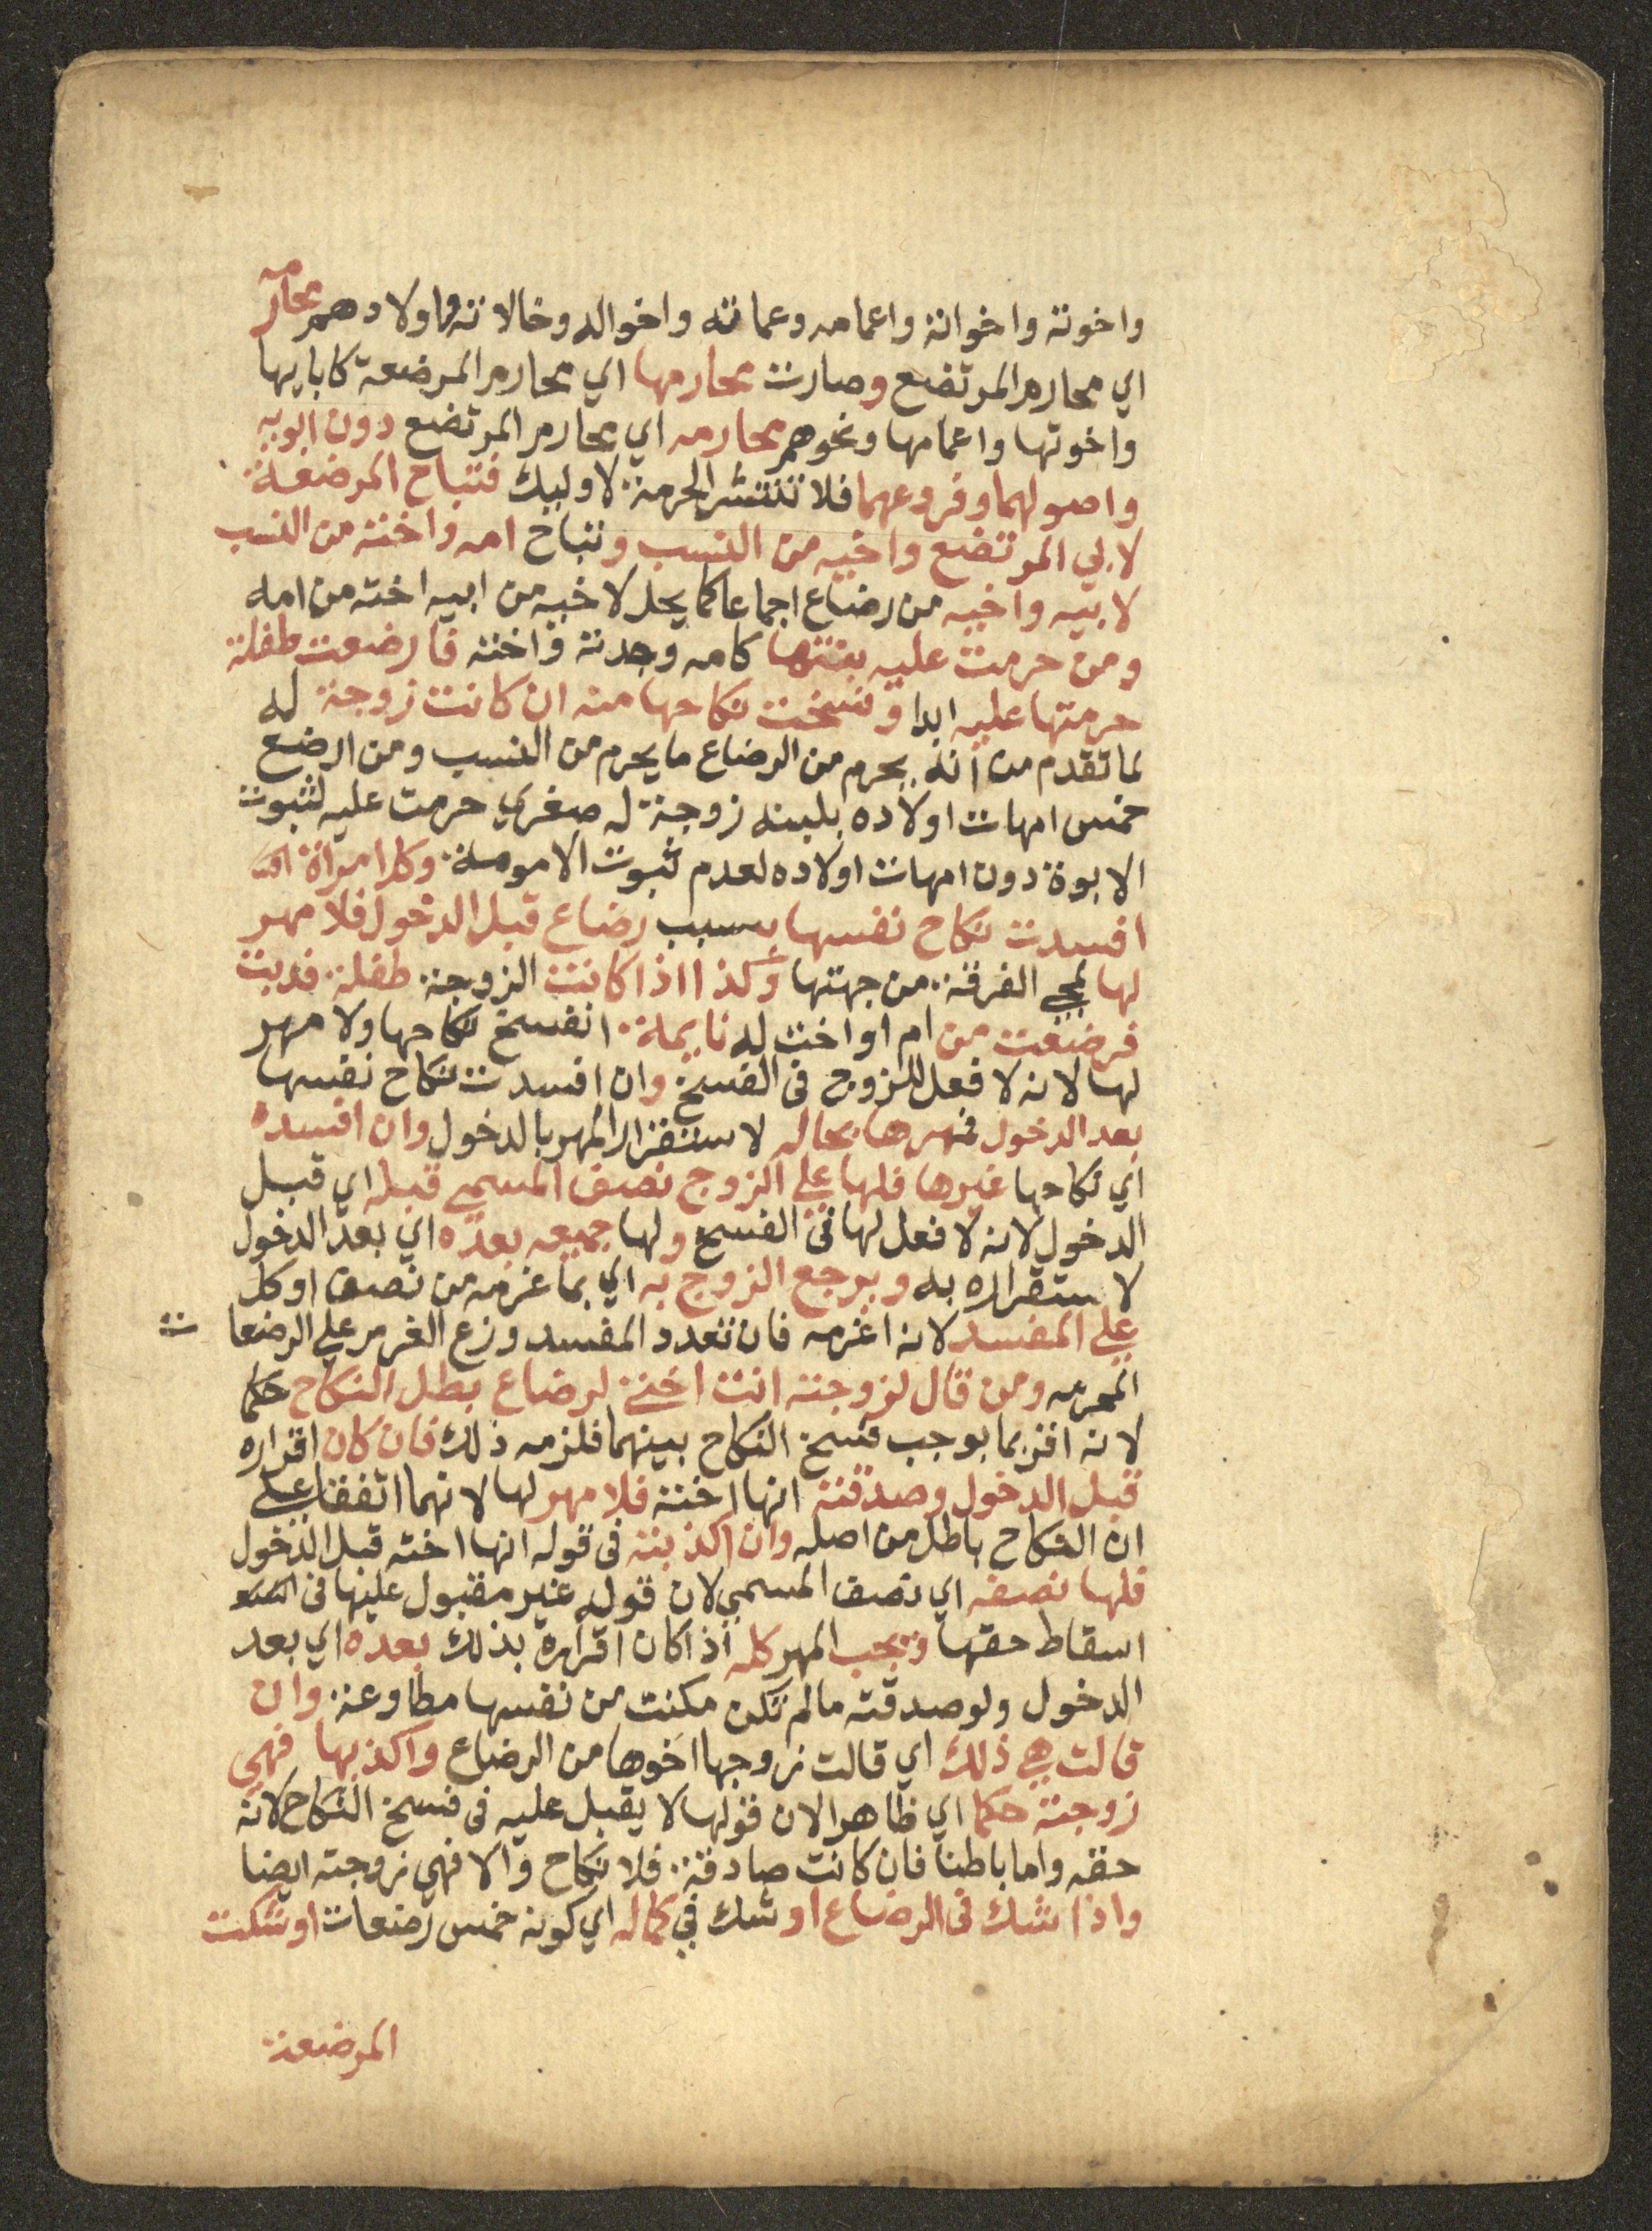 واخوته واخواته واعمامه وعماته واخواله وخالاته واولادهم محارمه
اي محارم المرتضع وصارت محارمها اي محارم المرضعة كابايها
واخوتها واعمامها ونحوهم محارمه اي محارم المرتضع دون ابويه
واصولهما وفروعهما فلا تنتشر الحرمة لاوليك فتباح المرضعة
لابي المرتضع واخيه من النسب وتباح امه واخته من النسب
لابيه واخيه من رضاع اجماعا كما يحل لاخيه من ابيه اخته من امه
ومن حرمت عليه بنتها كامه وجدته واخته فارضعت طفلة
حرمتها عليه ابدا وفسخت نكاحها منه ان كانت زوجة له
لما تقدم من انه يحرم من الرضاع ما يحرم من النسب ومن ارضع
خمس امهات اولاده بلبنه زوجة له صغري حرمت عليه لثبوت
الابوة دون امهات اولاده لعدم ثبوت الامومة وكل امراة
افسدت نكاح نفسها بسبب رضاع قبل الدخول فلا مهر
لها لمجي الفرقة من جهتها وكذا اذا كانت الزوجة طفلة فدبت
فرضعت من ام او اخت له نايمة انفسخ نكاحها ولا مهر
لها لانه لا فعل للزوج في الفسخ وان افسدت نكاح نفسها
بعد الدخول فمهرها بحاله لاستقرار المهر بالدخول وان افسده
اي نكاحها غيرها فلها علي الزوج نصف المسمي قبله اي قبل
الدخول لانه لا فعل لها في الفسخ ولها جميعه بعده اي بعد الدخول
لاستقراره به ويرجع الزوج به اي بما غرمه من نصف او كل
علي المفسد لانه اغرمه فان تعدد المفسد وزع الغرم علي الرضعات
المحرمه ومن قال لزوجته انت اختي لرضاع بطل النكاح حكما
لانه اقر بما يوجب فسخ النكاح بينهما فلزمه ذلك فان كان اقراره
قبل الدخول وصدقته انها اخته فلا مهر لها لانهما اتفقا علي
ان النكاح باطل من اصله وان اكذبته في قوله انها اخته قبل الدخول
فلها نصفه اي نصف المسمي لان قوله غير مقبول عليها في
اسقاط حقها ويجب المهر كله اذا كان اقراره بذلك بعده اي بعد
الدخول ولو صدقته ما لم تكن مكنت من نفسها مطاوعة وان
قالت هي ذلك اي قالت زوجها اخوها من الرضاع واكذبها فهي
زوجته حكما اي ظاهرا لان قولها لا يقبل عليه في فسخ النكاح لانه
حقه واما باطنا فان كانت صادقة فلا نكاح والا فهي زوجته ايضا
واذا شك في الرضاع او شك في كماله اي كونه خمس رضعات او شكت
المرضعة